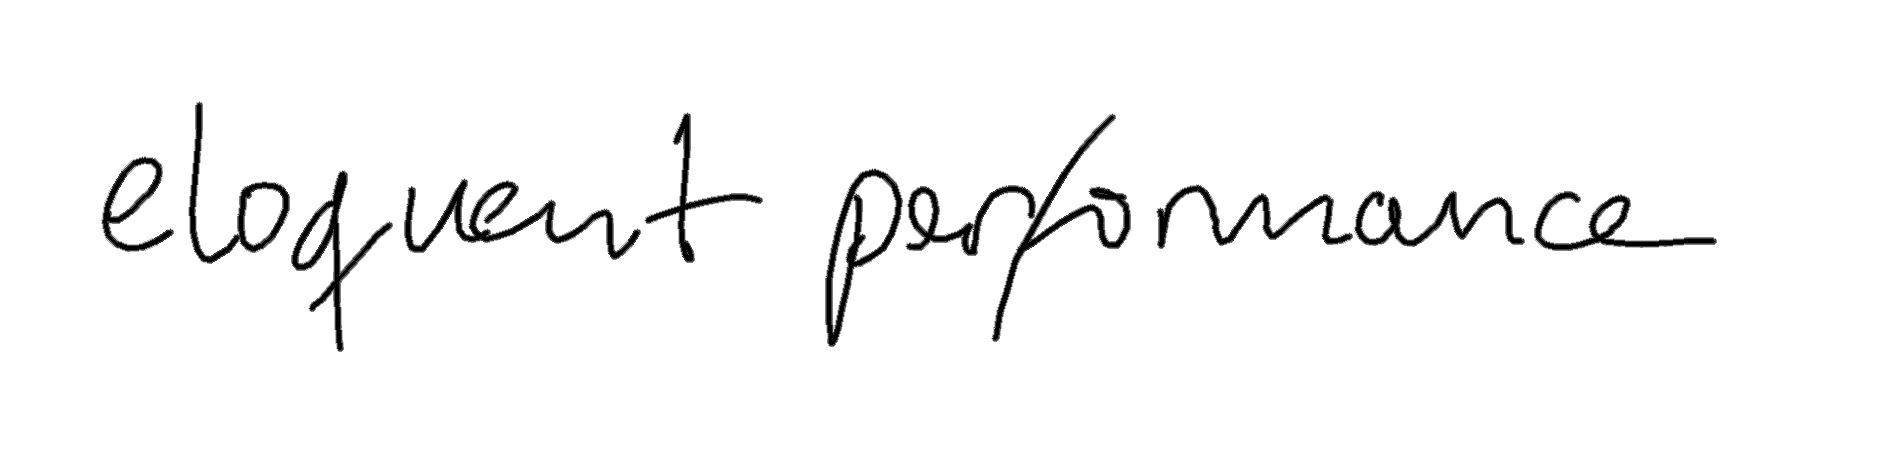 eloquent performance